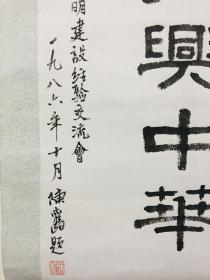 興中華
明建設经驗交流會
一九八六年十月 陳雷題